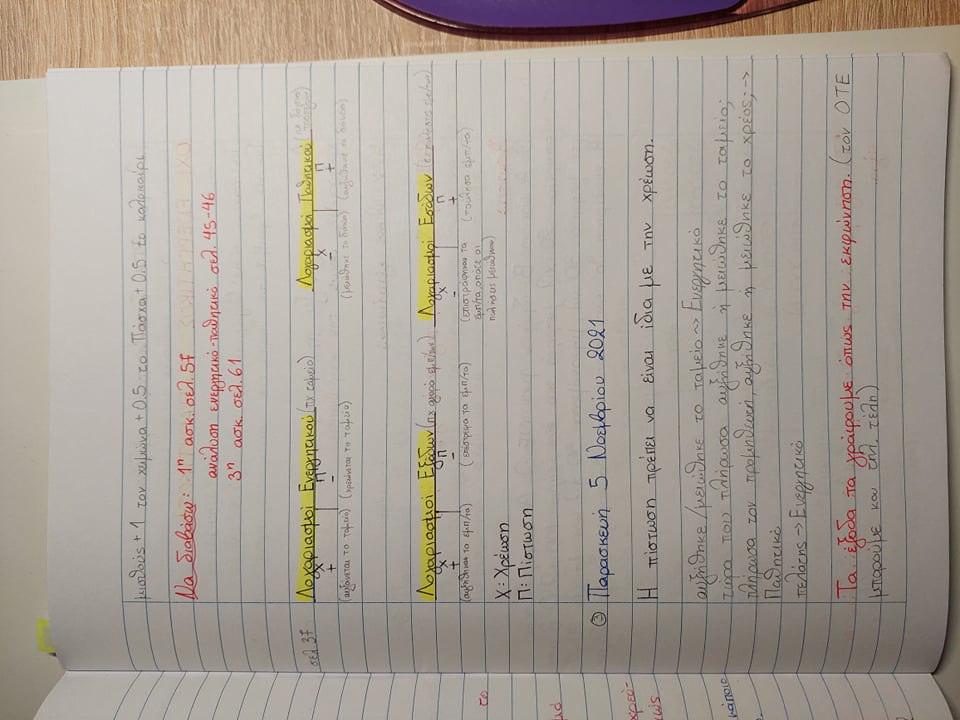 μισθούς + 1 τον χειμώνα + 0.5 το Πάσχα + 0.5 το καλοκαίρι
Να διαβάσω: 1η ασκ. σελ. 57
ανάλυση ενεργητικό-παθητικό σελ. 45-46
3η ασκ. σελ. 61
σελ 37
Λογαριασμοί Ενεργητικού (πχ ταμείο)
Χ Π
+ -
(αυξάνεται το ταμείο) (χρεώνεται το ταμείο)
Λογαριασμοί Παθητικού (πχ δάνειο τραπεζών)
Χ Π
- +
(μειώθηκε το δάνειο) (αυξήθηκε το δάνειο)
Λογαριασμοί Εξόδων (πχ αγορά εμπ/των)
Χ Π
+ -
(αυξήθηκαν τα εμπ/τα) (επέστρεψα τα εμπ/τα)
Λογαριασμοί Εσόδων
Χ Π
- +
(επιστράφηκαν τα (πούλησα εμπ/τα)
εμπ/τα, οπότε οι
πωλήσεις μειώθηκαν)
Χ: Χρέωση
Π: Πίστωση
το
κάποιο
③ Παρασκευή 5 Νοεμβρίου 2021
Η πίστωση πρέπει να είναι ίδια με την χρέωση.
αυξήθηκε/μειώθηκε το ταμείο ~> Ενεργητικό
τώρα που πλήρωσα αυξήθηκε ή μειώθηκε το ταμείο;
πλήρωσα τον προμηθευτή, αυξήθηκε ή μειώθηκε το χρέος; ->
Παθητικό
πελάτης -> Ενεργητικό
Τα έξοδα τα γράφουμε όπως την εκφώνηση. (τον ΟΤΕ
μπορούμε και τηλ. τέλη)